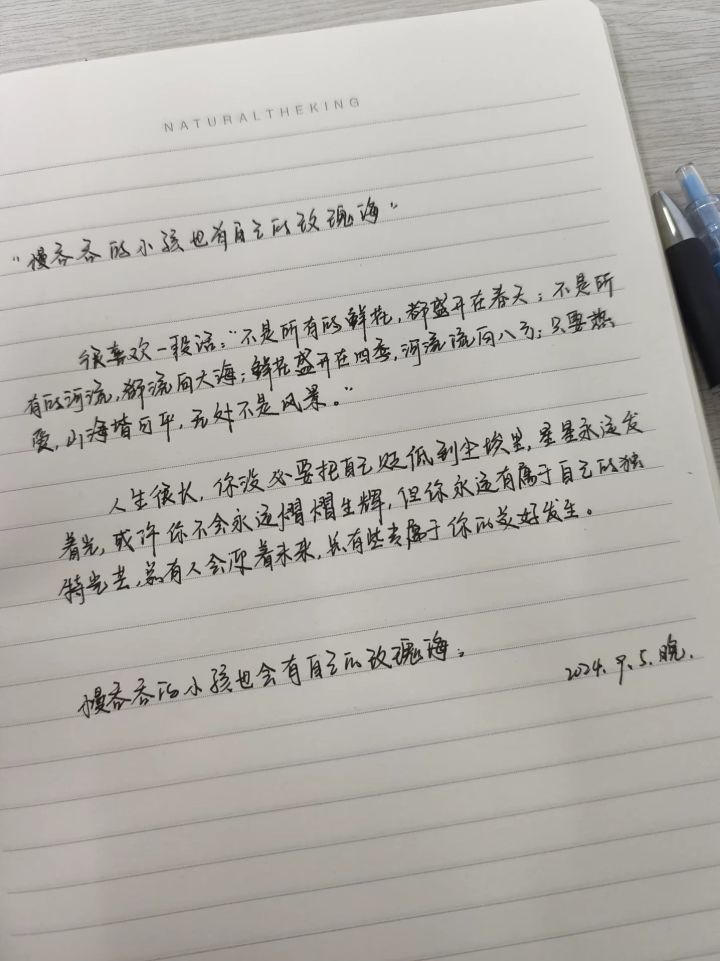 NATURALTHEKING
"慢吞吞的小孩也有自己的玫瑰海"
很喜欢一段话:"不是所有的鲜花,都盛开在春天;不是所
有的河流,都流向大海;鲜花盛开在四季,河流流向八方;只要热
爱,山海皆可平,无处不是风景。"
人生很长,你没必要把自己贬低到尘埃里,星星永远发
着光,或许你不会永远熠熠生辉,但你永远有属于自己的独
特光芒,总有人会原着未来,总有些专属于你的美好发生。
慢吞吞的小孩也会有自己的玫瑰海。
2024.9.5.晚.